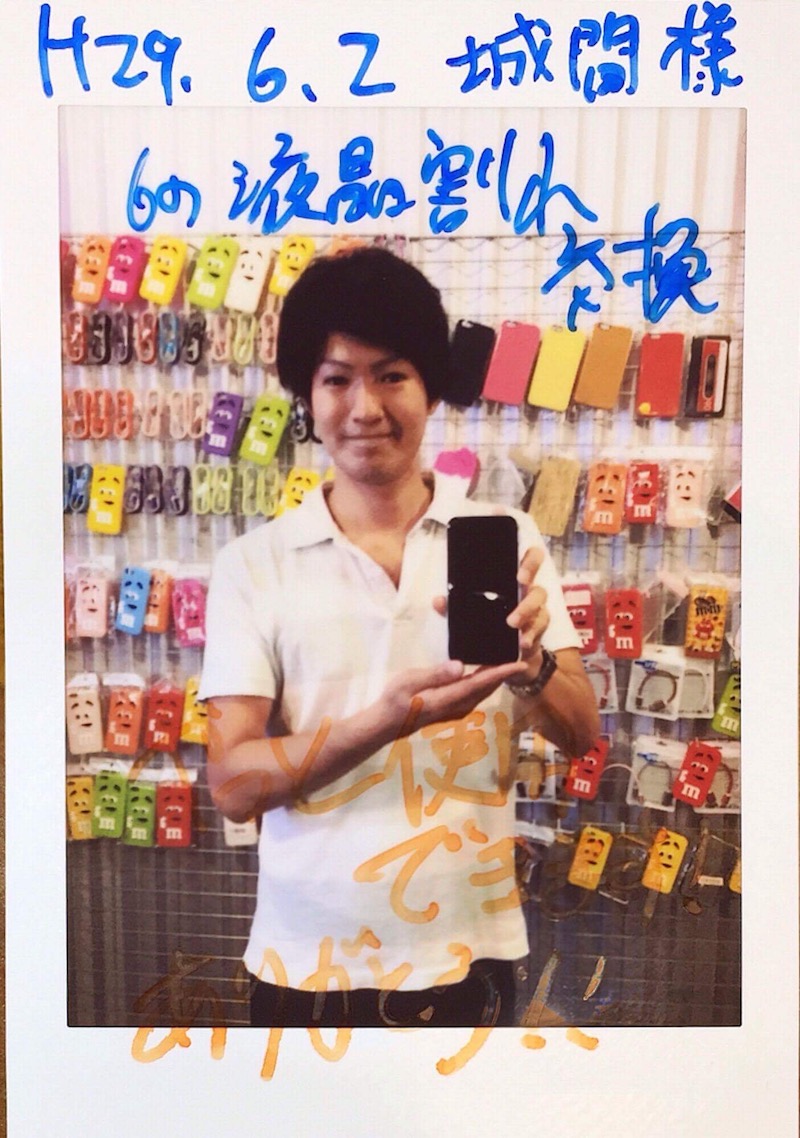 H29. 6. 2 城間様
6の液晶割れ
交換
ずっと使用
できます!
ありがとう!!